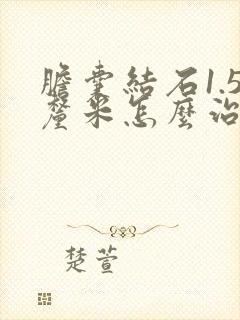 膽囊結石1.5
釐米怎麼治
楚萱